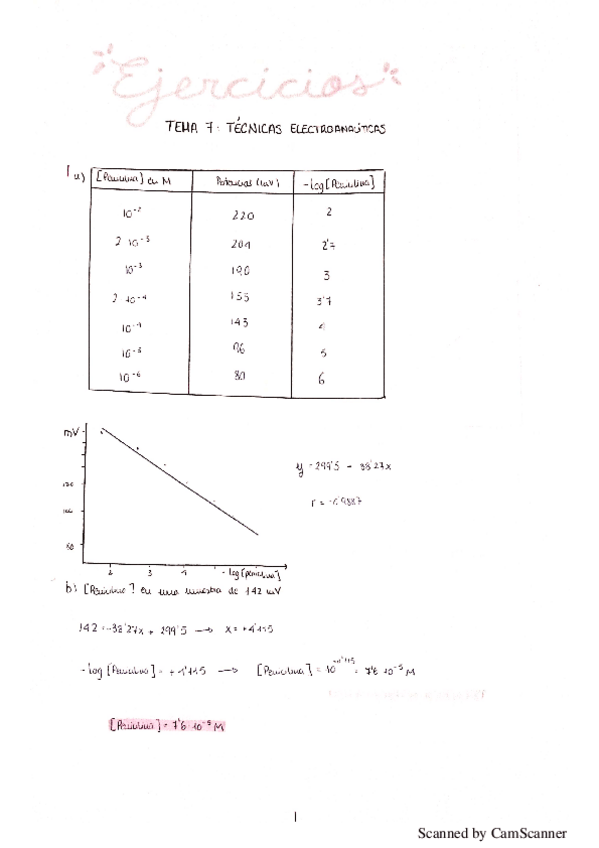 Ejercicios
TEMA 7: TÉCNICAS ELECTROANALÍTICAS
1 a)
[Penicilina] en M Potencial (mV) -log[Penicilina]
10⁻² 220 2
2·10⁻³ 204 2'7
10⁻³ 190 3
2·10⁻⁴ 155 3'7
10⁻⁴ 143 4
10⁻⁵ 96 5
10⁻⁶ 80 6
mV
y = 299'5 - 38'27x
100
50
2 3 4 -log[penicilina]
b) [Penicilina] en una muestra de 142 mV
142 = -38'27x + 299'5 → x = +4'115
-log[Penicilina] = +4'115 → [Penicilina] = 10 = 7'6·10⁻⁵ M
[Penicilina] = 7'6·10⁻⁵ M
1
Scanned by CamScanner